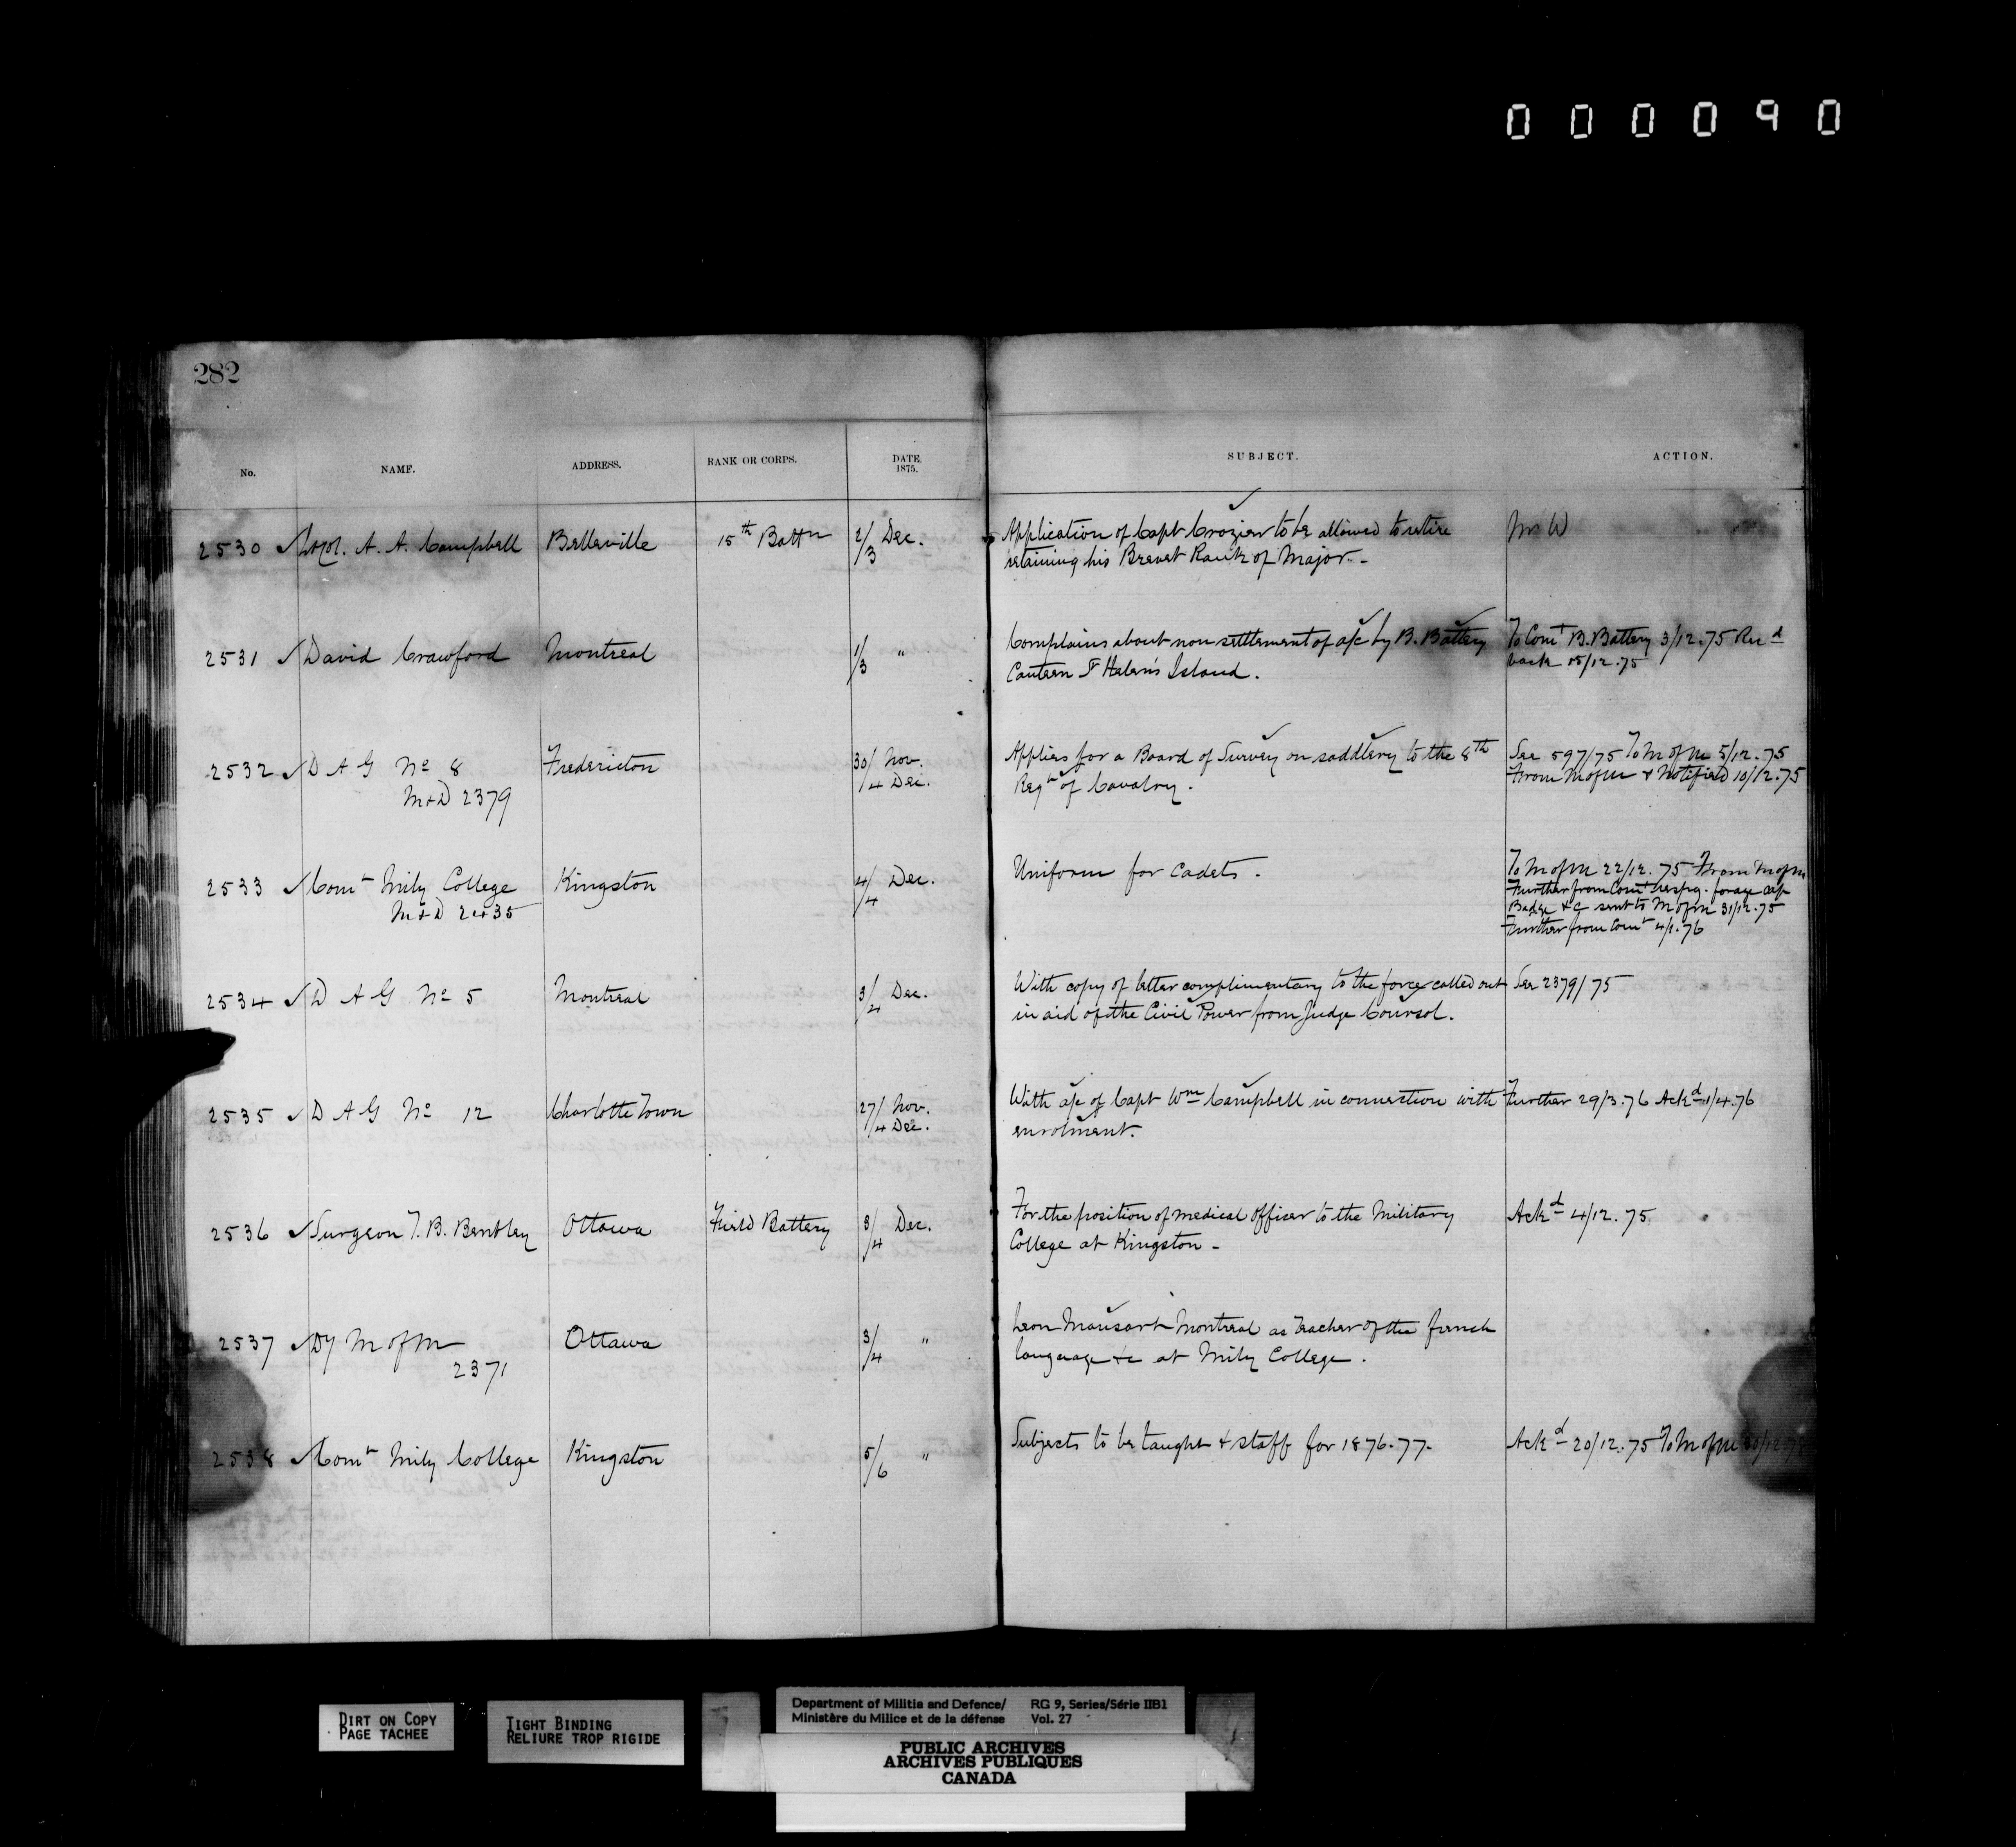 000090
282
No. NAME. ADDRESS. RANK OR CORPS. DATE. 1875. SUBJECT. ACTION.
2530 Lt Col. A. A. Campbell Belleville 15th Battn 2/3 Dec. Application of Capt Crozier to be allowed to retire
retaining his Brevet Rank of Major.-
2531 David Crawford Montreal 1/3 " Complains about non settlement of a/c by B. Battery To Comt B. Battery 3/12.75
Canteen St Helen's Island. back 15/12.75
2532 D A G No 8 Fredericton 30/ Nov. Applies for a Board of Survey on saddlery to the 8th See 597/75 To M of M 5/12.75
M&D 2379 /4 Dec. Regt of Cavalry. From M of M & Notified 10/12.75
2533 Comt Mily College Kingston 4/4 Dec. Uniform for Cadets. To M of M 22/12.75 From M of M
M&D 2435 Further from Comt respg. forage cap
Badge &c sent to M of M 31/12.75
Further from Comt 4/1.76
2534 D A G No 5 Montreal 3/4 Dec. With copy of letter complimentary to the force called out See 2379/75
in aid of the Civil Power from Judge Coursol.
2535 D A G No 12 Charlotte Town 27/ Nov. With a/c of Capt Wm Campbell in connection with Further 29/3.76 Ackd 1/4.76
/4 Dec. enrolment.
2536 Surgeon T. B. Bentley Ottawa Field Battery 3/4 Dec. For the position of medical officer to the Military Ackd 4/12.75
College at Kingston -
2537 Dy M of M Ottawa 3/4 " Leon Mausart Montreal as Teacher of the french
2371 language &c at Mily College.
2538 Comt Mily College Kingston 5/6 " Subjects to be taught & staff for 1876.77. Ackd 20/12.75 To M of M
DIRT ON COPY
PAGE TACHEE
TIGHT BINDING
RELIURE TROP RIGIDE
Department of Militia and Defence/ RG 9, Series/Série IIB1
Ministère du Milice et de la défense Vol. 27
PUBLIC ARCHIVES
ARCHIVES PUBLIQUES
CANADA